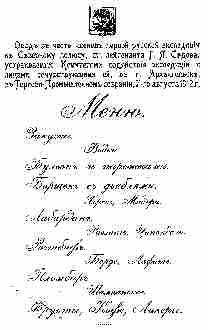 Обедъ въ честь первой русской экспедиціи
къ Сѣверному полюсу, ст. лейтенанта Г. Я. Сѣдова,
Комитетомъ содѣйствія экспедиціи и
лицами, сочувствующими ей, въ г. Архангельскѣ,
въ Торгово-Промышленномъ собраніи, августа 1912 г.
Меню.
Закуски.
Водки
Бульонъ съ пирожками.
Борщокъ съ дьяблями.
Хересъ, Мадера.
Лабарданъ.
Ростбифъ.
Бордо, Лафитъ.
Пломбиръ.
Шампанское.
Фрукты, Кофе, Ликеры.